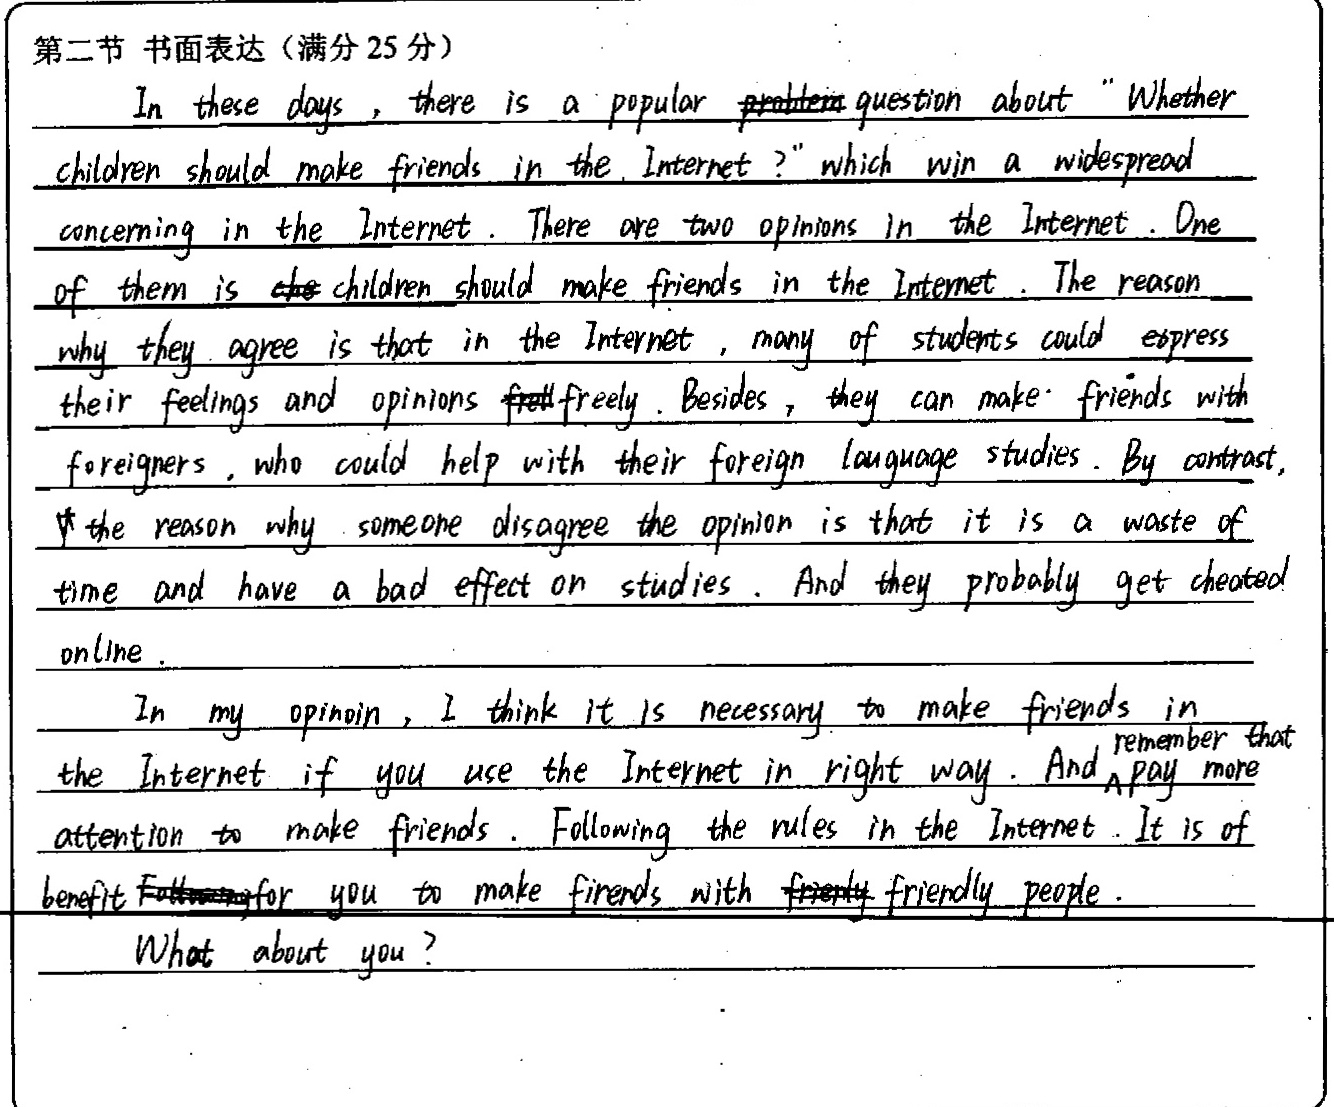 第二节 书面表达（满分 25 分）
In these days, there is a popular question about "Whether
children should make friends in the Internet?" which win a widespread
concerning in the Internet. There are two opinions in the Internet. One
of them is children should make friends in the Internet. The reason
why they agree is that in the Internet, many of students could espress
their feelings and opinions freely. Besides, they can make friends with
foreigners, who could help with their foreign lauguage studies. By contrast,
the reason why someone disagree the opinion is that it is a waste of
time and have a bad effect on studies. And they probably get cheated
online.
In my opinoin, I think it is necessary to make friends in
remember that
the Internet if you use the Internet in right way. And pay more
attention to make friends. Following the rules in the Internet. It is of
benefit for you to make firends with friendly people.
What about you?